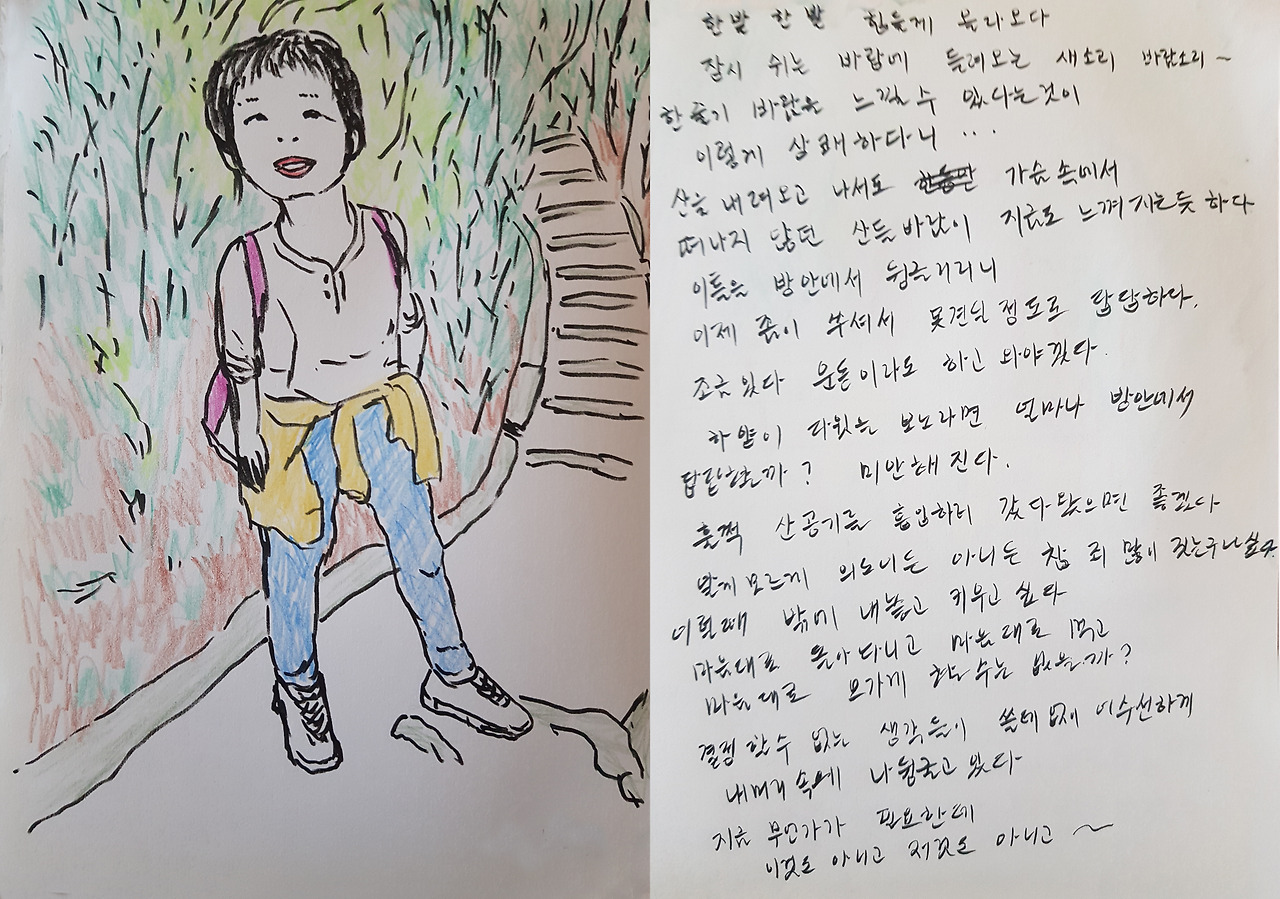 한발 한발 힘들게 올라오다
잠시 쉬는 바람에 들려오는 새소리 바람소리~
한줄기 바람을 느낄수 있다는것이
이렇게 상쾌하다니 ...
산을 내려오고 나서도 가슴속에서
떠나지 않던 산들바람이 지금도 느껴지는듯 하다
이틀을 방안에서 뒹글거리니
이제 좀이 쑤셔서 못견딜정도로 답답하다.
조금있다 운동이라도 하고 와야겠다.
하얀이 다윗을 보노라면 얼마나 방안에서
답답할까? 미안해진다.
훌쩍 산공기를 흡입하러 갔다왔으면 좋겠다
알게모르게 의도이든 아니든 참 죄 많이 짓는구나싶다
이럴때 밖에 내놓고 키우고 싶다
마음대로 돌아다니고 마음대로 먹고
마음대로 오가게 할수는 없을까?
결정할수 없는 생각들이 쓸데없이 어수선하게
내머리속에 나뒹굴고 있다
지금 무언가가 필요한데
이것도 아니고 저것도 아니고 ~